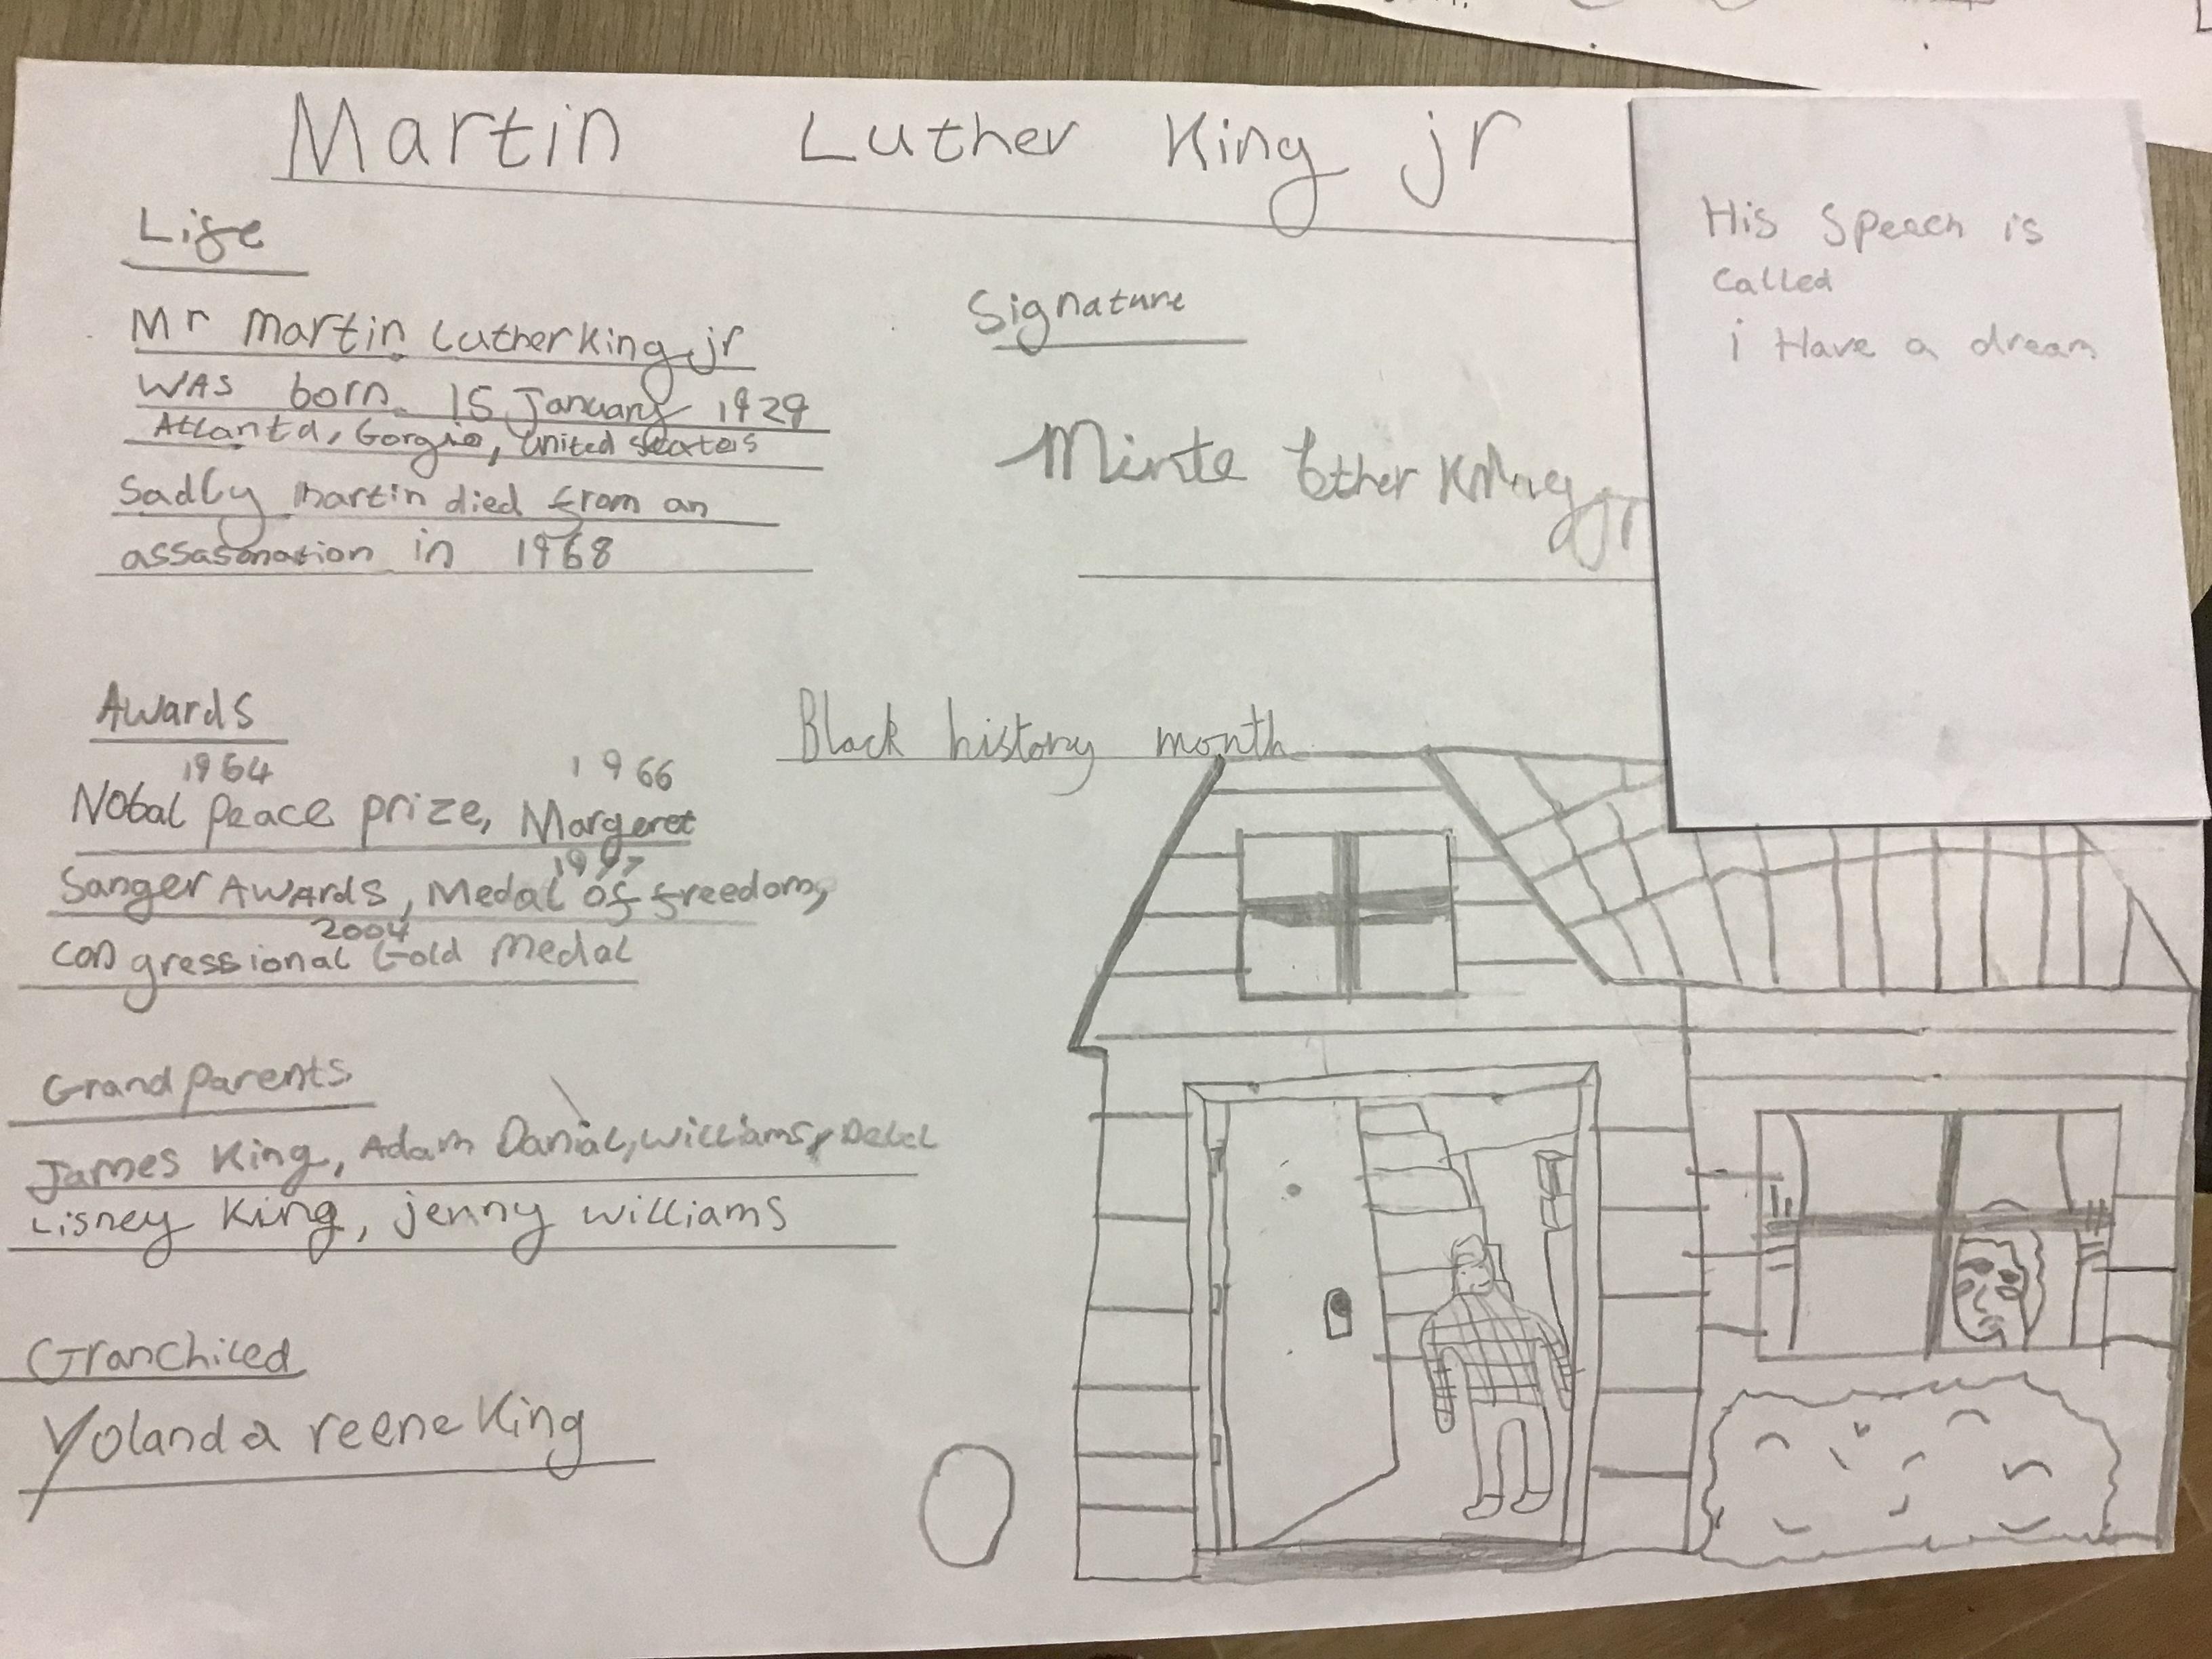 Martin Luther King jr
Life
Mr Martin Luther King jr
WAS born 15 January 1929
Atlanta, Gorgia, United states
Sadly Martin died from an
assasonation in 1968
Signature
Minte Ether King jr
His Speech is
Called
i Have a dream
Awards
1964 1966
Nobal Peace prize, Margeret
1977
Sanger Awards, Medal of freedom,
2004
congressional Gold Medal
Black history month
Grand parents
James King, Adam Danial, williams,
Lisney King, jenny williams
Granchiled
Yolanda reene King